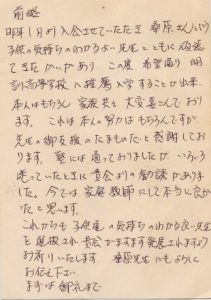 前略
昨年1月より入会させていただき 桑原さんという
子供の気持ちのわかるよい先生とともに頑張っ
てきたかいがあり この度 希望通り 明
高等学校へ推薦入学することが出来、
本人はもちろん 家族共々 大変喜こんでおり
ます。これは本人の努力はもちろんですが
先生の御支援のたまものだと感謝してお
ります。塾には通っておりましたが、いろいろ
迷っていたときに貴会よりの勧誘がありま
した。今では家庭教師にして本当に良かっ
たと思います。
これからも子供達の気持ちのわかる良い先生
を選抜され 貴会がますます発展されますよう
お祈りいたします。桑原先生にもよろしく
お伝え下さい
まずは御礼まで